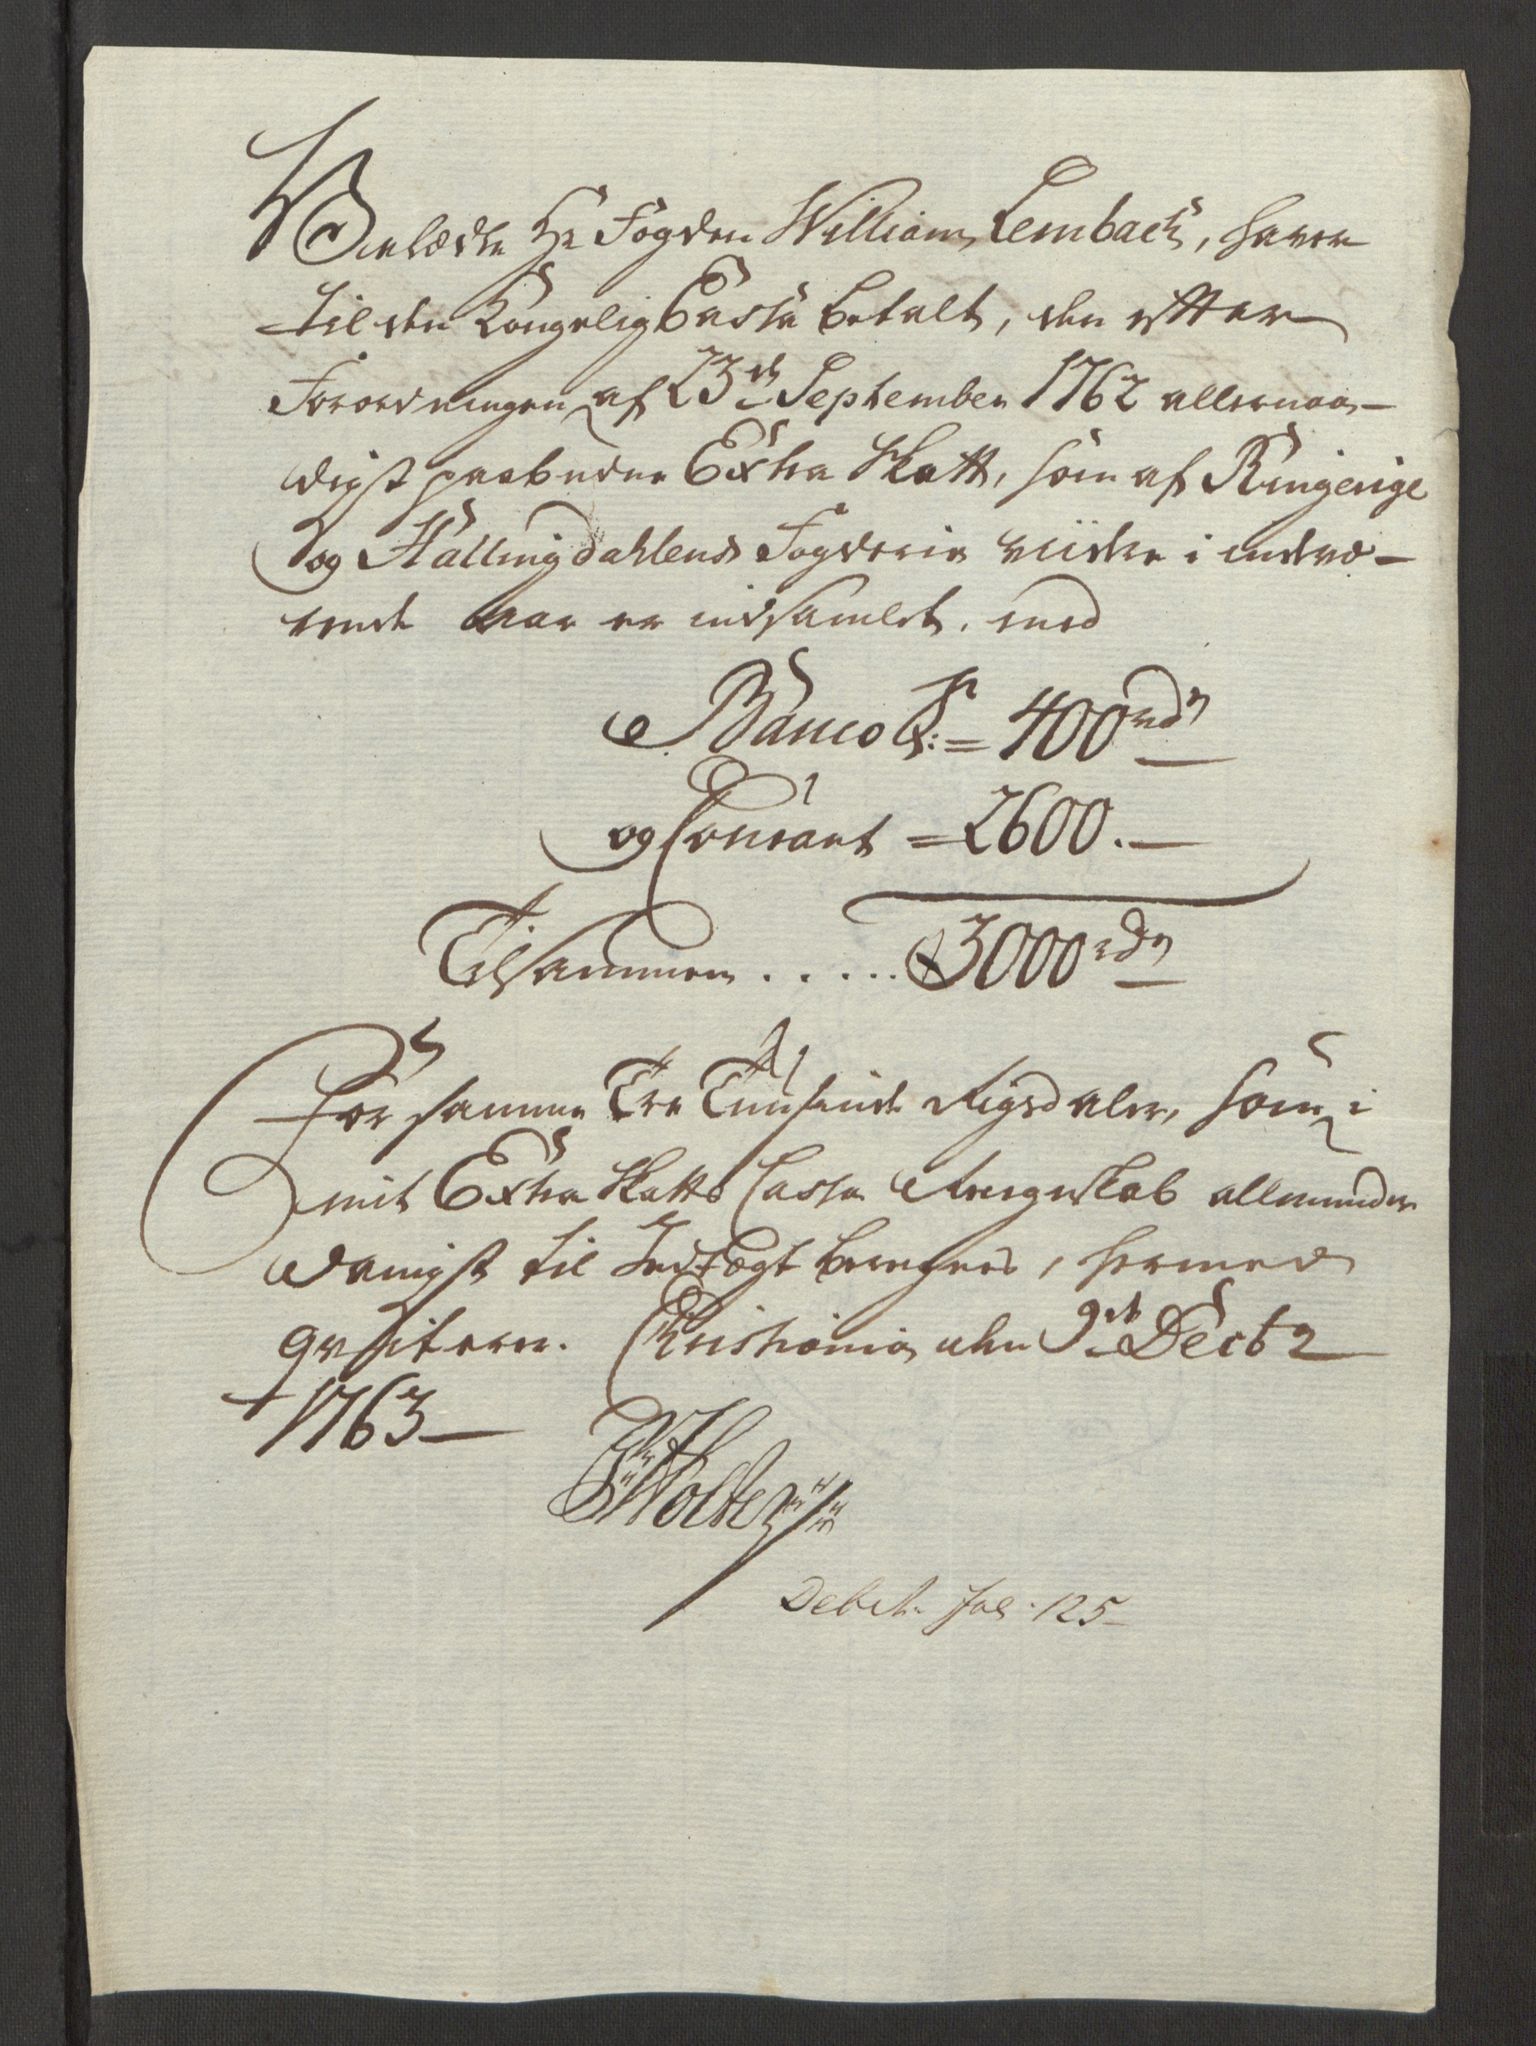 Velædle Hr Fogden William Lembach, haver
til den Kongelig Cassa betalt, den efter
Forordningen af 23de September 1762 allernaa-
digst paabudne Extra Skatt, som af Ringerige
og Hallingdahlens Fogderie i indevæ-
rende aar er indsamlet, med
Banco S: = 400 rdr
og Courant = 2600.
Tilsammen . . . . . 3000 rdr
For samme Tre Tusinde Rigsdaler, som i
mit Extra Skatts Cassa Regnskab allerunder
danigst til Indtægt beregnes, hermed
qviterer. Christiania den 9de Decbr
1763
Holter
Debet. fol: 125